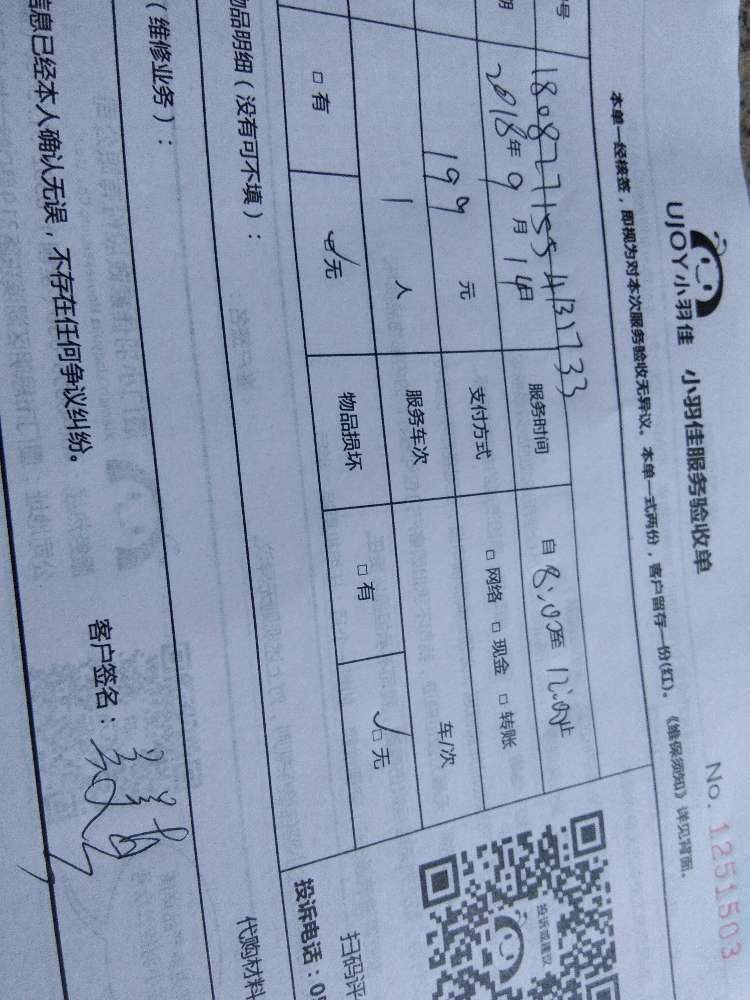 UJOY小羽佳 小羽佳服务验收单 No. 1251503
本单一经核签，即视为对本次服务验收无异议。本单一式两份，客户留存一份(红)。《维保须知》详见背面。
号
期 2018年9月14日 服务时间 自8:00至12:00止
199元 支付方式 □网络 □现金 □转账
1人 服务车次 车/次
□有 ☑无 物品损坏 □有 ☑无
物品明细（没有可不填）：
投诉或建议
扫码评
投诉电话：05
代购材料
（维修业务）：
信息已经本人确认无误，不存在任何争议纠纷。 客户签名：